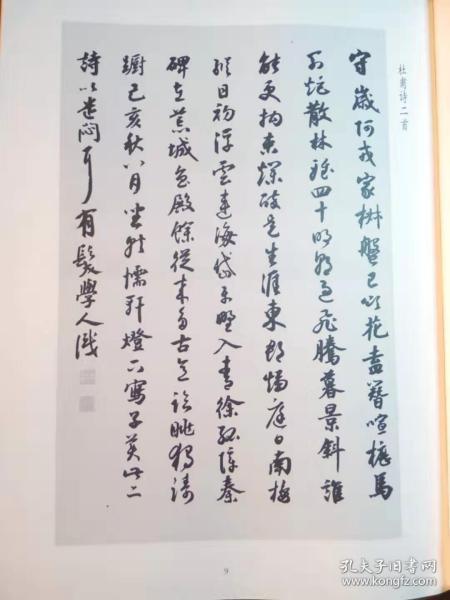 杜甫詩二首
守歲阿戎家椒盤已頌花盍簪喧櫪馬
列炬散林鴉四十明朝過飛騰暮景斜誰
能更拘束爛醉是生涯東郡趨庭日南樓
縱目初浮雲連海岱平野入青徐孤嶂秦
碑在荒城魯殿餘從來多古意臨眺獨躊
躇己亥秋八月坐於懦軒燈下寫子美此二
詩以遣悶耳有髮學人識
9
孔夫子旧书网
www.kongfz.com